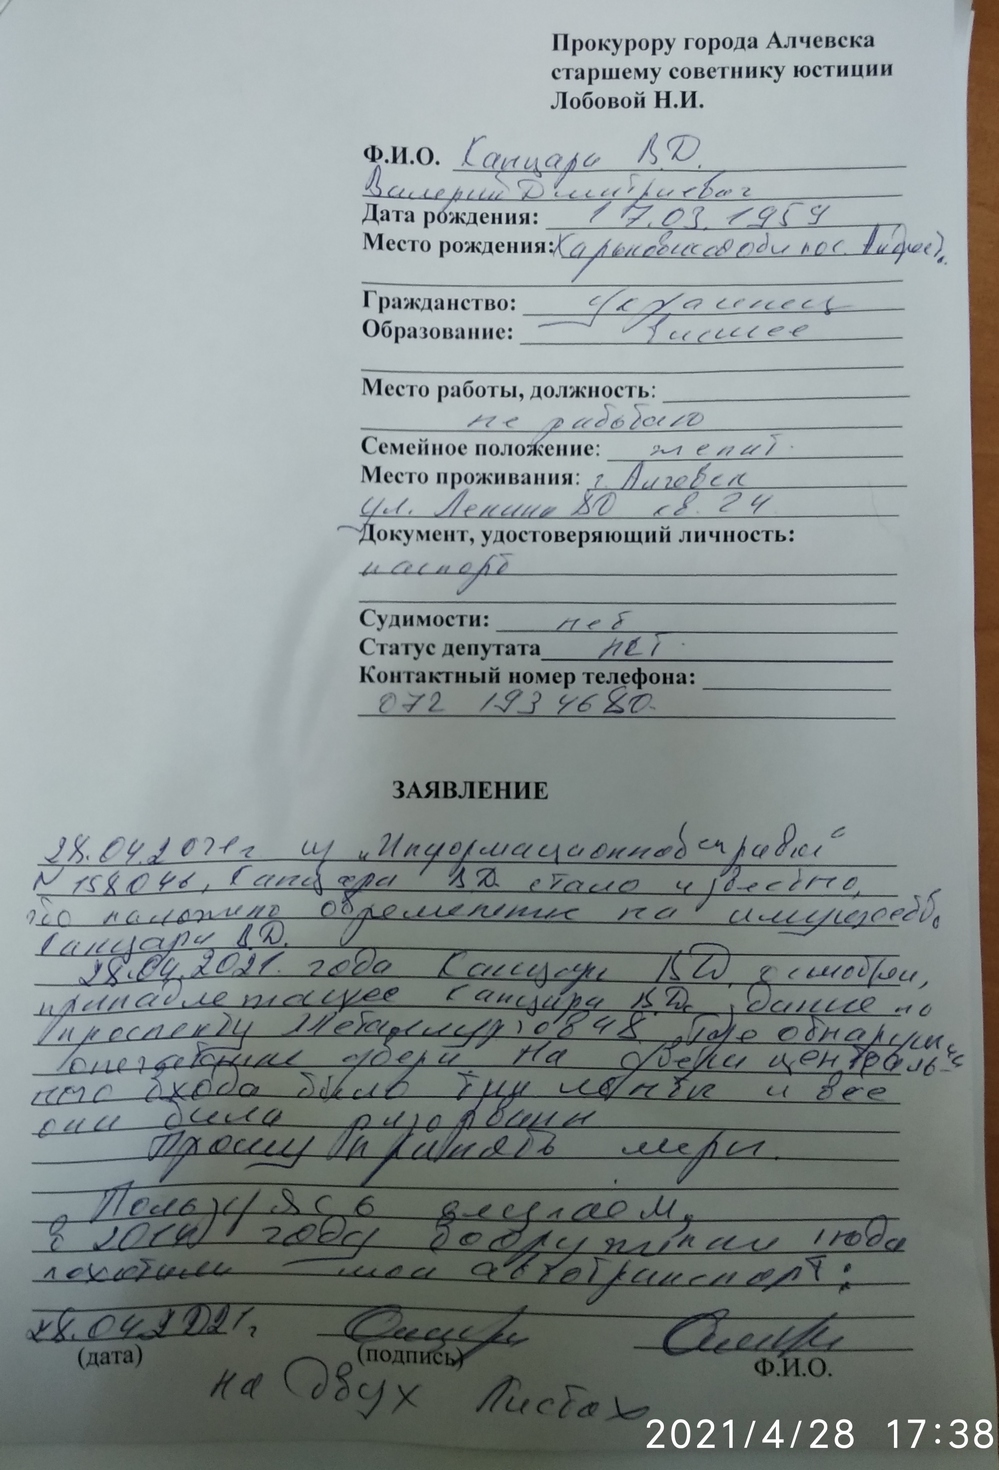 Прокурору города Алчевска
старшему советнику юстиции
Лобовой Н.И.
Ф.И.О. Канцара В.Д.
Валерий Дмитриевич
Дата рождения: 17.03.1959
Место рождения: Харьковская обл пос.
Гражданство: украинец
Образование: высшее
Место работы, должность:
не работаю
Семейное положение: женат.
Место проживания: г. Алчевск
ул. Ленина 80 кв. 24
Документ, удостоверяющий личность:
паспорт
Судимости: нет
Статус депутата нет.
Контактный номер телефона:
072 193 46 80
ЗАЯВЛЕНИЕ
28.04.2021г из "Информационной справки"
N 158046, Канцара В.Д. стало известно,
что наложено обременение на имущество
Канцары В.Д.
28.04.2021. года Канцара В.Д.
принадлежащее Канцара В.Д. здание по
проспекту Металлургов 48 где обнаружил
двери на двери централь-
ного входа было три ленты и все
они были
Прошу принять меры.
Пользуясь случаем,
в 2014 году вооружении люди
похитили мой автотранспорт:
28.04.2021г
(дата) (подпись) Ф.И.О.
на двух листах
2021/4/28 17:38